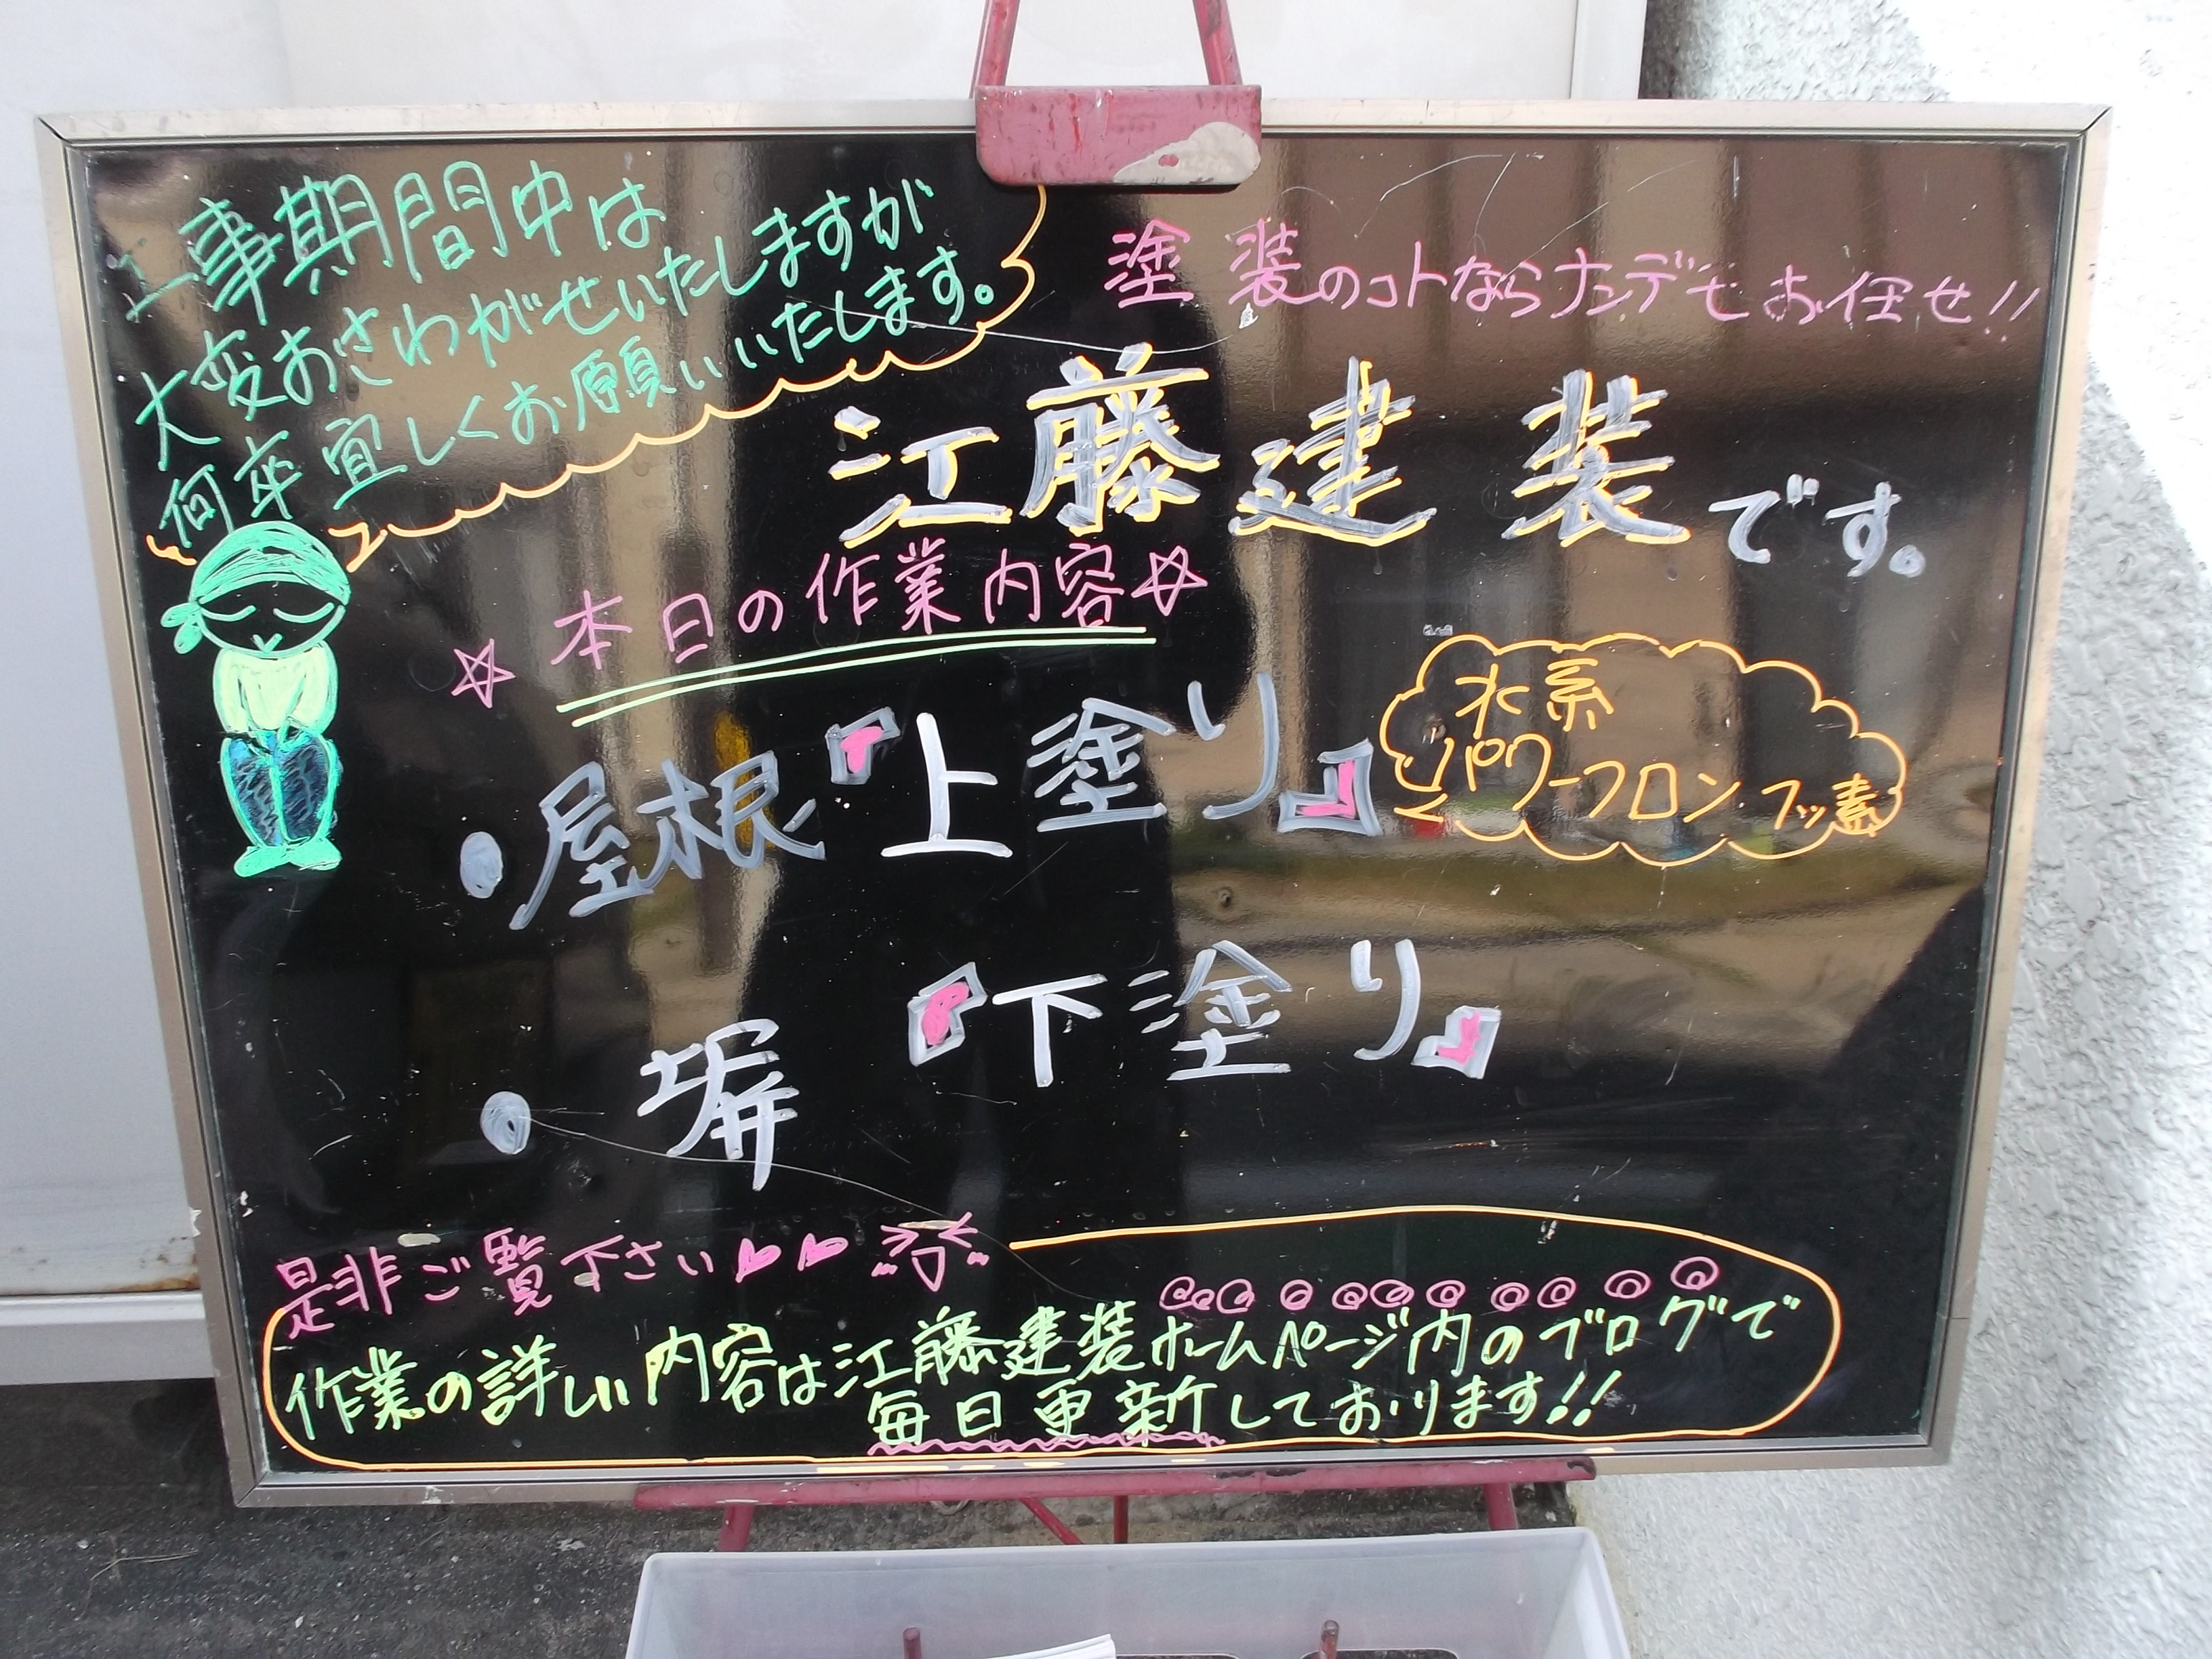 工事期間中は
大変おさわがせいたしますが
何卒宜しくお願いいたします。
塗装のコトならナンデモお任せ!!
江藤建装です。
☆本日の作業内容☆
・屋根『上塗り』
水系
パワーフロン フッ素
・塀『下塗り』
是非ご覧下さい
作業の詳しい内容は江藤建装ホームページ内のブログで
毎日更新しております!!